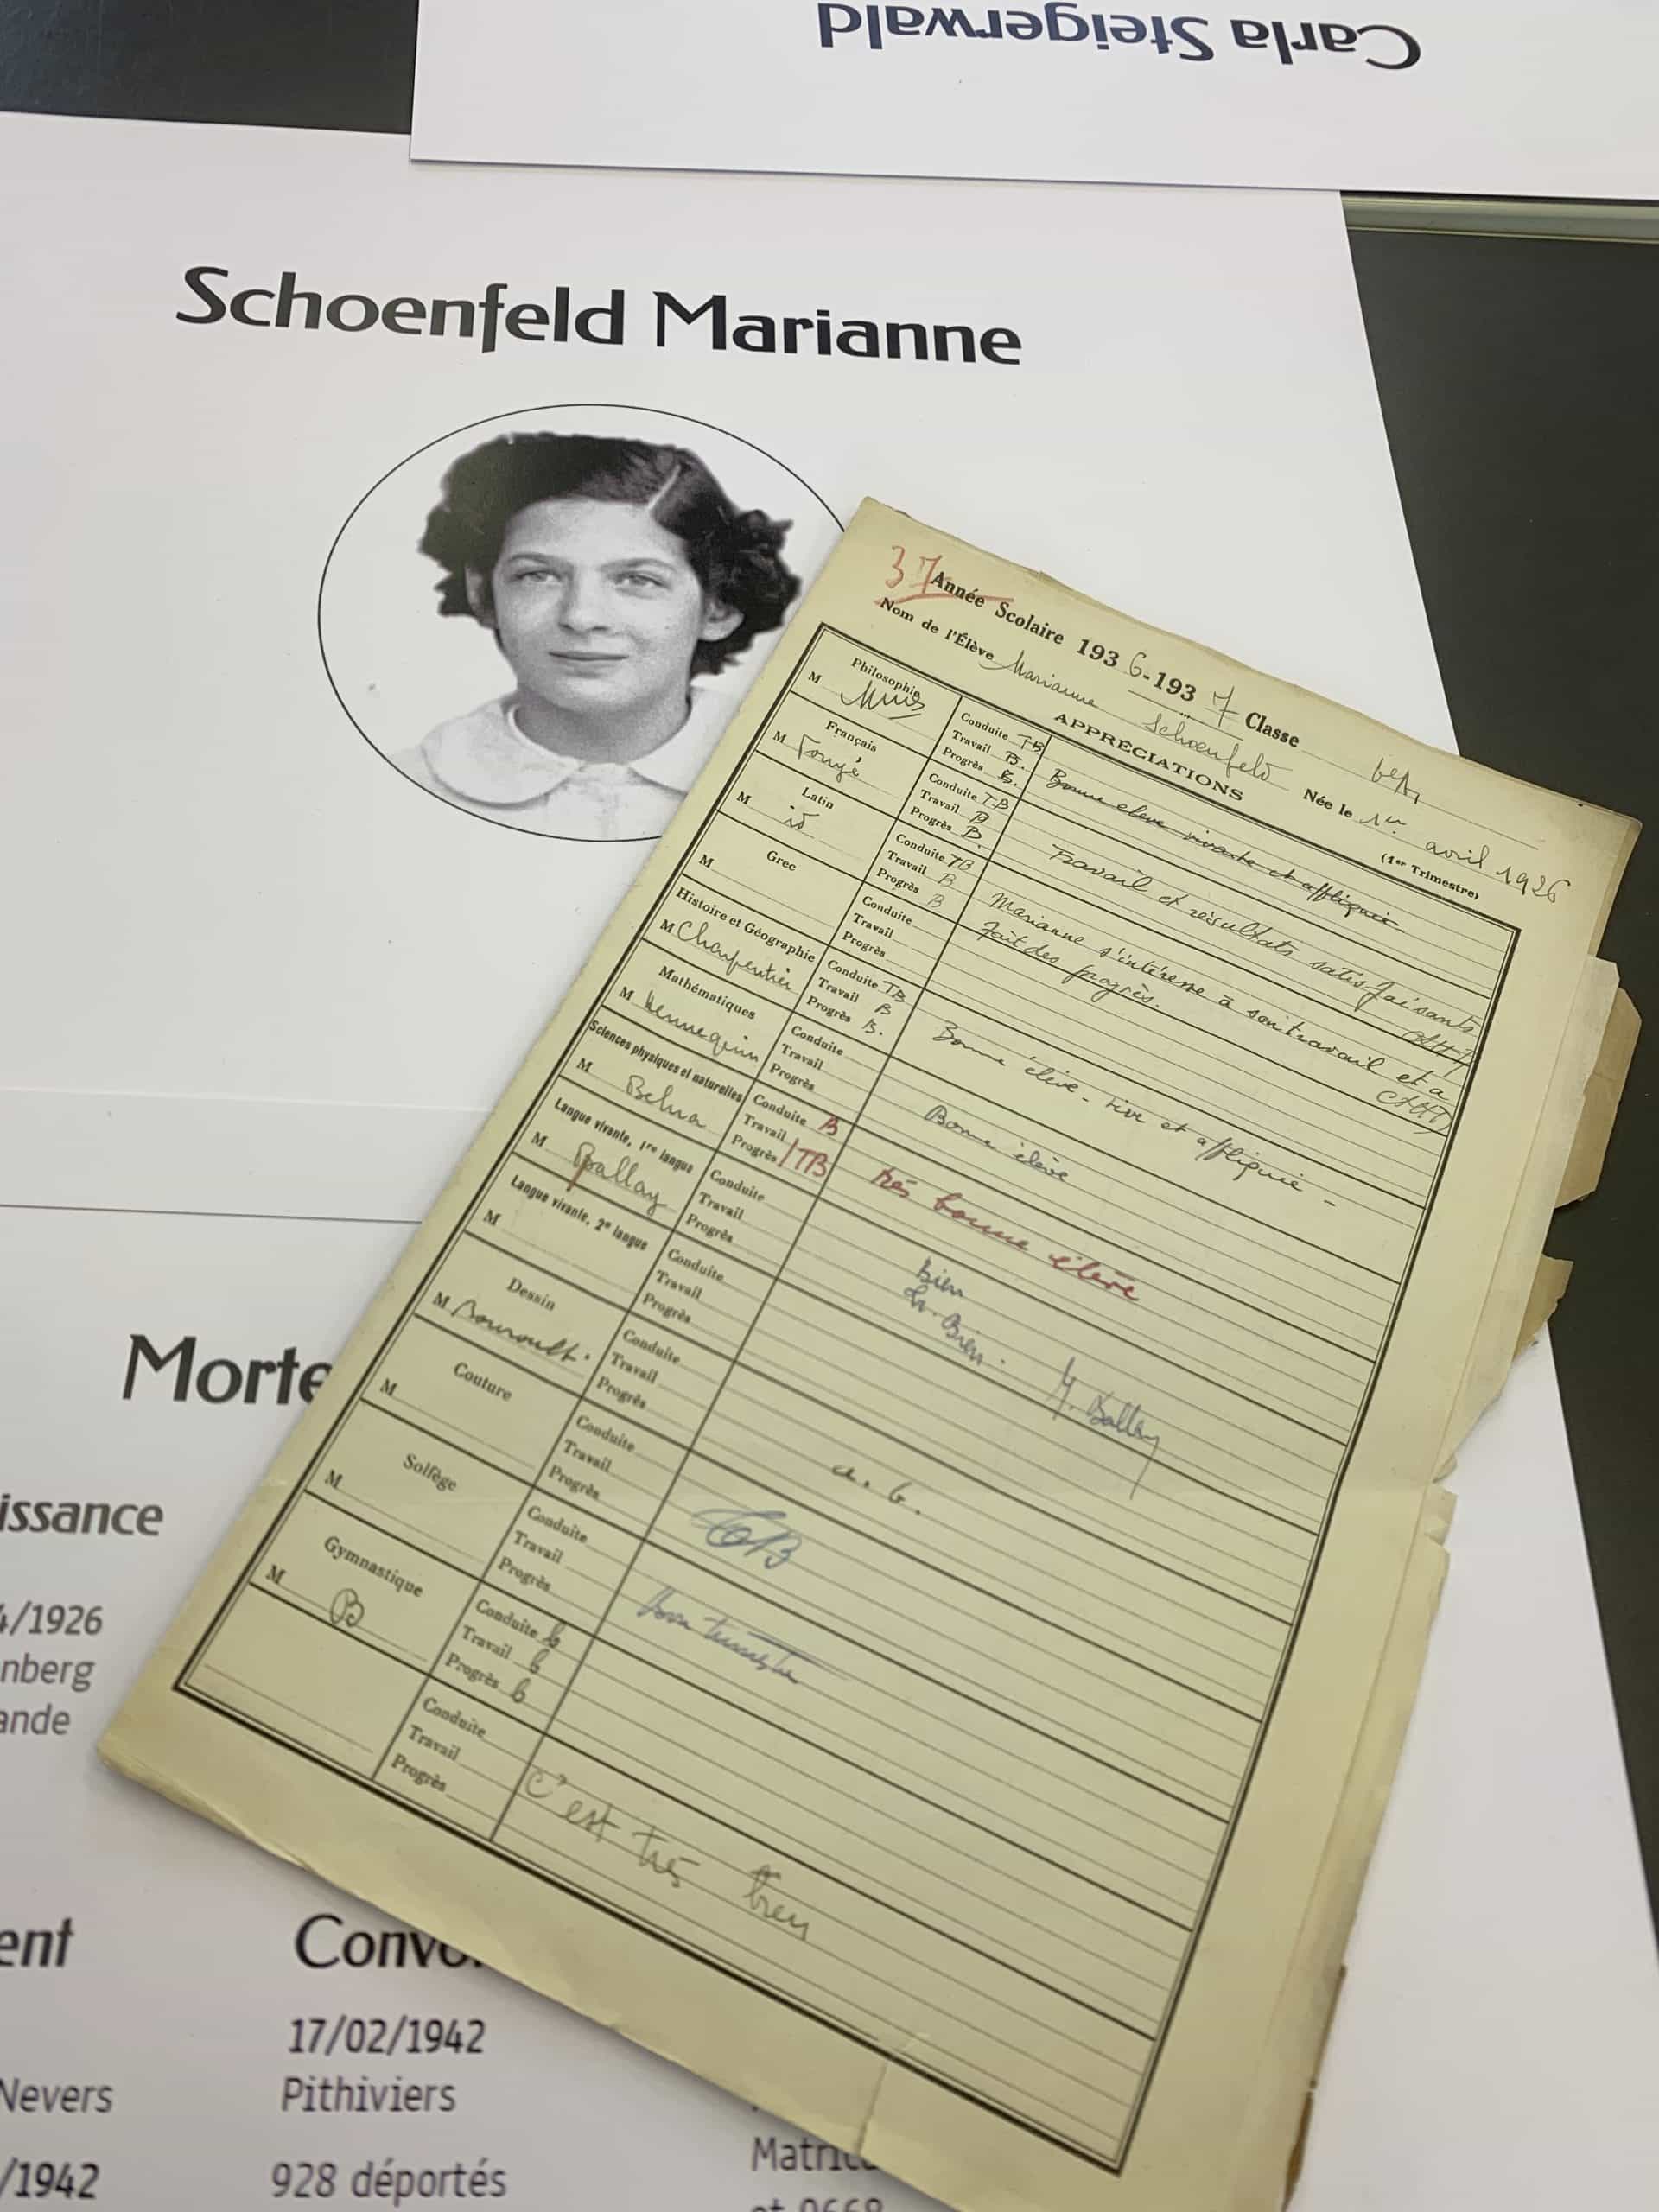 Carla Steigerwald
Schoenfeld Marianne
37
Année Scolaire 1936-1937 Classe 6e A1
Nom de l'Élève Marianne Schoenfeld Née le 1er avril 1926
APPRÉCIATIONS
(1er Trimestre)
Philosophie
M
Conduite TB
Travail B.
Progrès B.
Bonne élève vivante et appliquée.
Français
M
Conduite TB
Travail B
Progrès B.
Travail et résultats satisfaisants
Latin
M id
Conduite TB
Travail B
Progrès B
Marianne s'intéresse à son travail et a
fait des progrès.
Grec
M
Conduite
Travail
Progrès
Histoire et Géographie
M Charpentier
Conduite TB
Travail B
Progrès B.
Bonne élève - vive et appliquée -
Mathématiques
M Hennequin
Conduite
Travail
Progrès
Bonne élève
Sciences physiques et naturelles
M
Conduite B
Travail
Progrès TB
très bonne élève
Langue vivante, 1re langue
M Ballay
Conduite
Travail
Progrès
Bien
Tr. Bien.
Ballay
Langue vivante, 2e langue
M
Conduite
Travail
Progrès
Dessin
M
Conduite
Travail
Progrès
a. b.
Couture
M
Conduite
Travail
Progrès
TB
Solfège
M
Conduite
Travail
Progrès
Bon trimestre
Gymnastique
M B
Conduite b
Travail b
Progrès b
Conduite
Travail
Progrès
C'est très bien
Morte
issance
4/1926
nberg
ande
ent
Convo
17/02/1942
Nevers
Pithiviers
/1942
928 déportés
Matric
et 9668